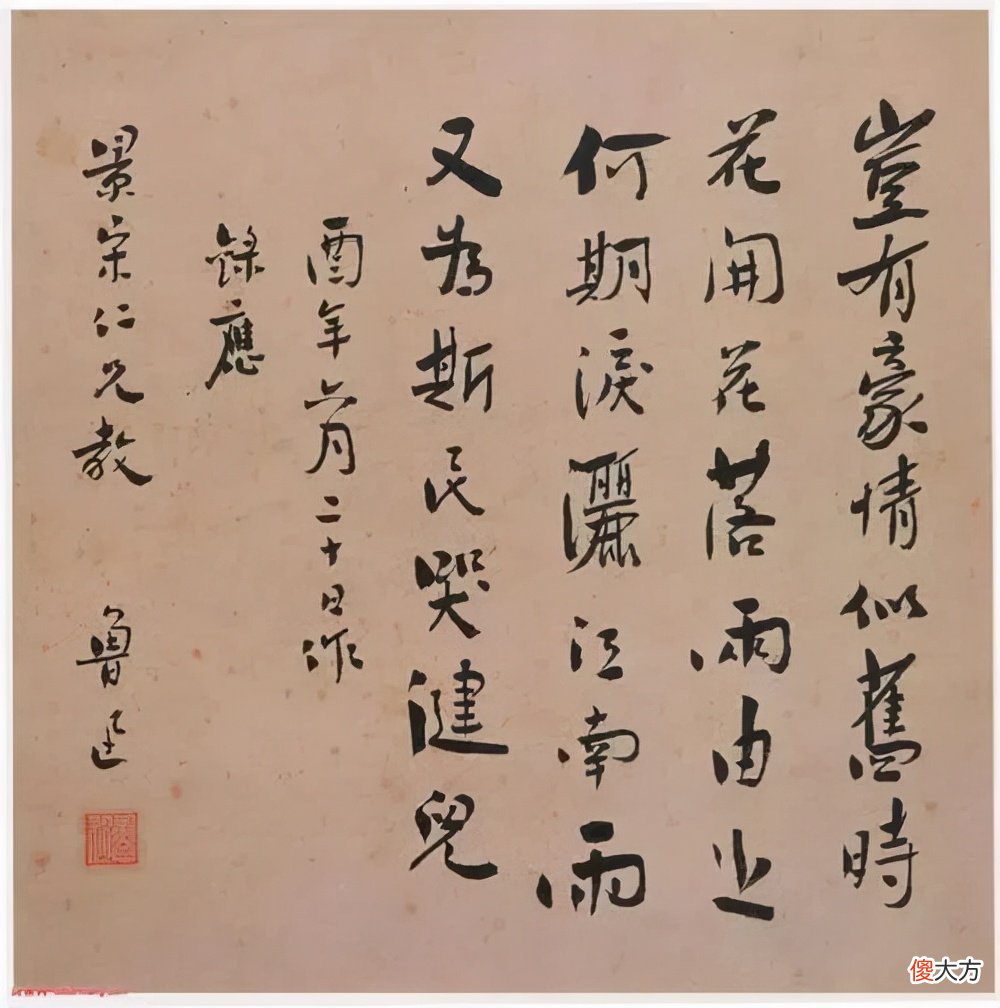 豈有豪情似舊時
花開花落兩由之
何期淚灑江南雨
又為斯民哭健兒
酉年六月二十日作
錄應
景宋仁兄教
魯迅
傻大方